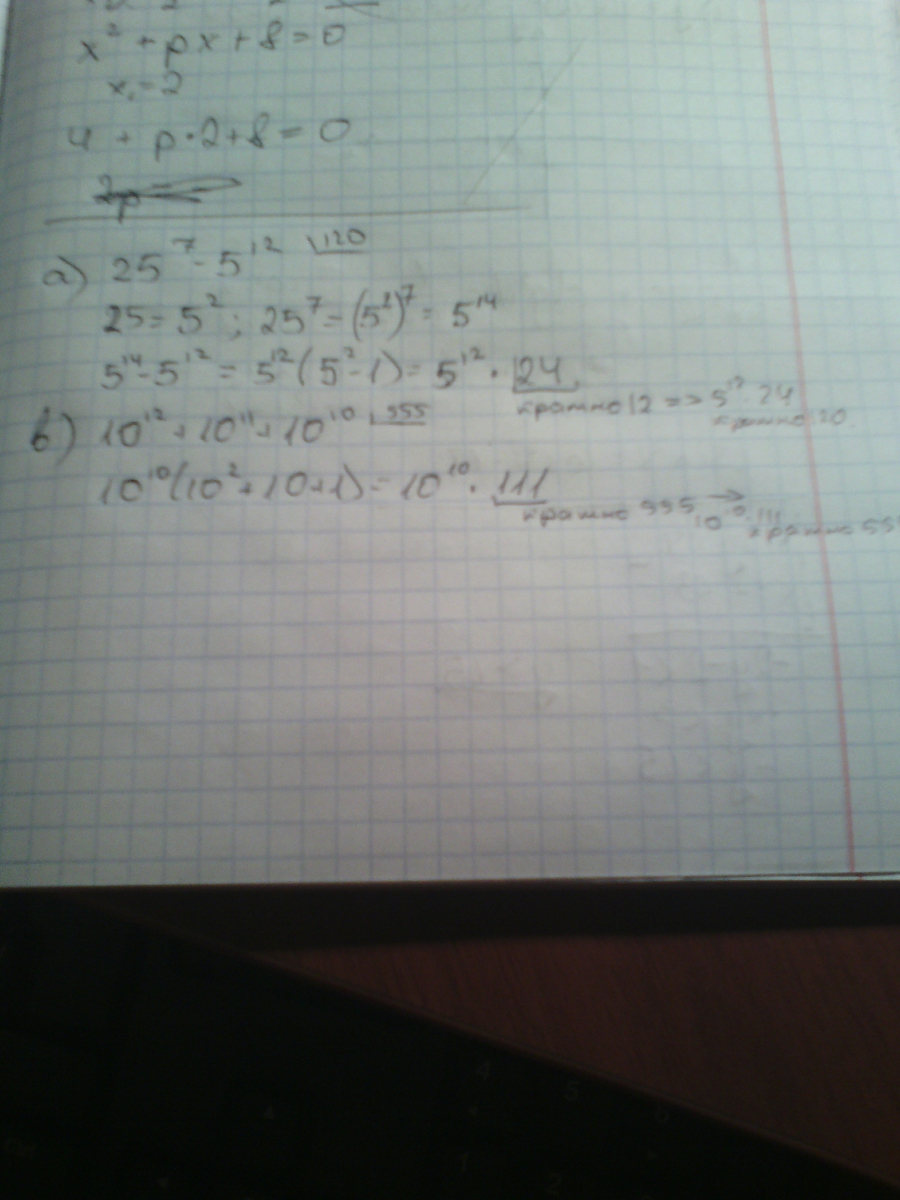 x² + px + 8 = 0
x₁ = 2
4 + p·2 + 8 = 0
2p =
а) 25⁷ - 5¹² 120
25 = 5²; 25⁷ = (5²)⁷ = 5¹⁴
5¹⁴ - 5¹² = 5¹²(5² - 1) = 5¹² · 24
кратно 12 => 5¹² · 24
кратно 120
в) 10¹² + 10¹¹ + 10¹⁰ 555
10¹⁰(10² + 10 + 1) = 10¹⁰ · 111
кратно 555 → 10¹⁰ · 111
кратно 55